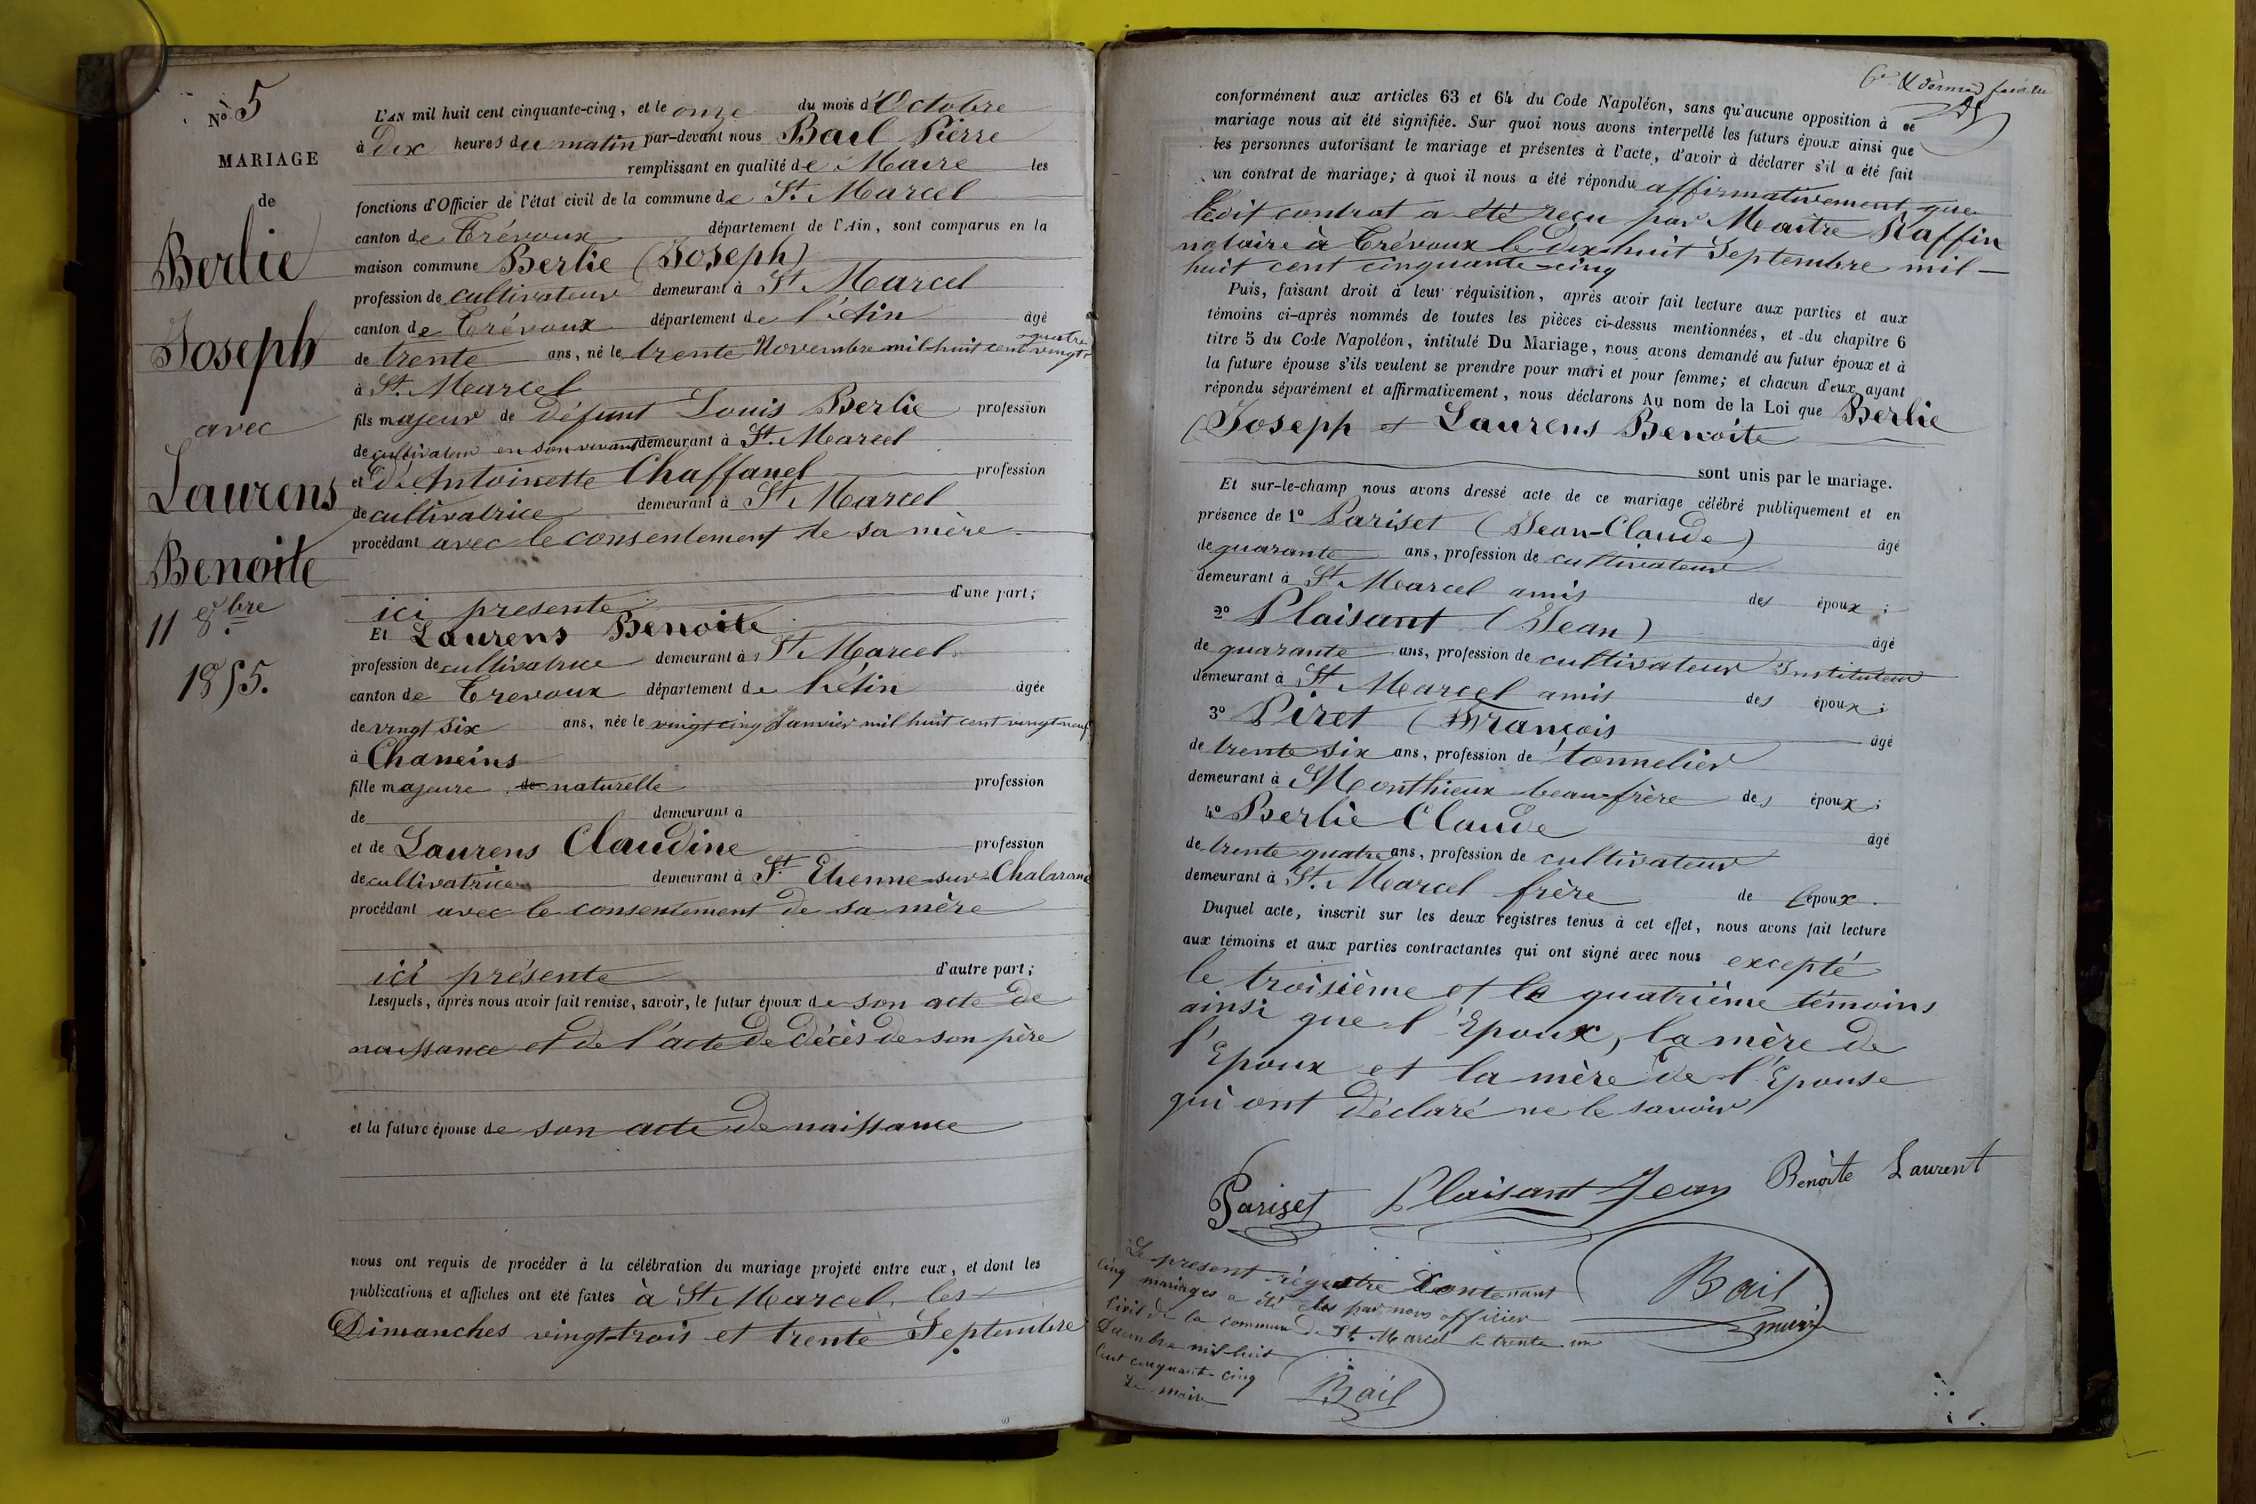 Nº 5
MARIAGE
de
Berlie
Joseph
avec
Laurens
Benoite
11 8bre
1855.
L'AN mil huit cent cinquante-cinq, et le onze du mois d'Octobre
à Dix heures du matin par-devant nous Bail Pierre
remplissant en qualité de Maire les
fonctions d'Officier de l'état civil de la commune de St. Marcel
canton de Trévoux département de l'Ain, sont comparus en la
maison commune Berlie (Joseph)
profession de cultivateur demeurant à St Marcel
canton de Trévoux département de l'Ain âgé
de trente ans, né le trente Novembre mil huit cent vingt quatre
à St. Marcel
fils majeur de défunt Louis Berlie profession
de cultivateur en son vivant demeurant à St. Marcel
et d'Antoinette Chaffanel profession
de cultivatrice demeurant à St Marcel
procédant avec le consentement de sa mère
ici presente d'une part;
Et Laurens Benoite
profession de cultivatrice demeurant à St Marcel
canton de Trevoux département de l'Ain âgée
de vingt six ans, née le vingt cinq Janvier mil huit cent vingt neuf
à Chaneins
fille majeure de naturelle profession
de demeurant à
et de Laurens Claudine profession
de cultivatrice demeurant à St. Etienne-sur-Chalaronne
procédant avec le consentement de sa mère
ici présente d'autre part;
Lesquels, après nous avoir fait remise, savoir, le futur époux de son acte de
naissance et de l'acte de décès de son père
et la future épouse de son acte de naissance
nous ont requis de procéder à la célébration du mariage projeté entre eux, et dont les
publications et affiches ont été faites à St Marcel les
Dimanches vingt-trois et trente Septembre
conformément aux articles 63 et 64 du Code Napoléon, sans qu'aucune opposition à ce
mariage nous ait été signifiée. Sur quoi nous avons interpellé les futurs époux ainsi que
les personnes autorisant le mariage et présentes à l'acte, d'avoir à déclarer s'il a été fait
un contrat de mariage; à quoi il nous a été répondu affirmativement que
ledit contrat a été reçu par Maitre Raffin
notaire à Trévoux le dix huit Septembre mil
huit cent cinquante-cinq
Puis, faisant droit à leur réquisition, après avoir fait lecture aux parties et aux
témoins ci-après nommés de toutes les pièces ci-dessus mentionnées, et du chapitre 6
titre 5 du Code Napoléon, intitulé Du Mariage, nous avons demandé au futur époux et à
la future épouse s'ils veulent se prendre pour mari et pour femme; et chacun d'eux ayant
répondu séparément et affirmativement, nous déclarons Au nom de la Loi que Berlie
(Joseph et Laurens Benoite
sont unis par le mariage.
Et sur-le-champ nous avons dressé acte de ce mariage célébré publiquement et en
présence de 1º Pariset (Jean-Claude) âgé
de quarante ans, profession de cultivateur
demeurant à St. Marcel amis des époux;
2º Plaisant (Jean) âgé
de quarante ans, profession de cultivateur Instituteur
demeurant à St Marcel amis des époux;
3º Piret (François âgé
de trente six ans, profession de tonnelier
demeurant à Monthieux beau-frère des époux;
4º Berlie Claude âgé
de trente quatre ans, profession de cultivateur
demeurant à St. Marcel frère de l'époux.
Duquel acte, inscrit sur les deux registres tenus à cet effet, nous avons fait lecture
aux témoins et aux parties contractantes qui ont signé avec nous excepté
le troisième et le quatrième témoins
ainsi que l'Epoux, la mère de
l'Epoux et la mère de l'Epouse
qui ont déclaré ne le savoir
Pariset Plaisant Jean Benoite Laurent
Bail
maire
Le present régistre Contenant
Cinq mariages a été clos par nous officier
Civil de la commune de St. Marcel le trente un
Decembre mil huit
Cent cinquante-cinq
Le maire
Bail